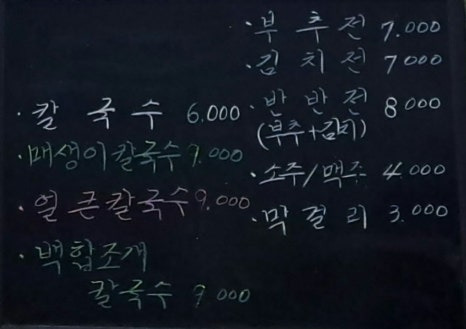 · 칼 국 수 6.000
· 매생이칼국수 9.000
· 얼큰칼국수 9.000
· 백합조개
칼국수 9.000
· 부 추 전 7.000
· 김 치 전 7000
· 반 반 전 8000
(부추+김치)
· 소주/맥주 4.000
· 막 걸 리 3.000